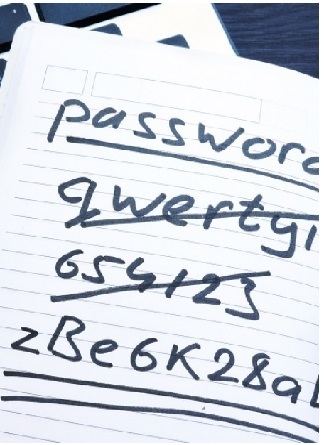 password
qwerty1
654123
zBe6K28a